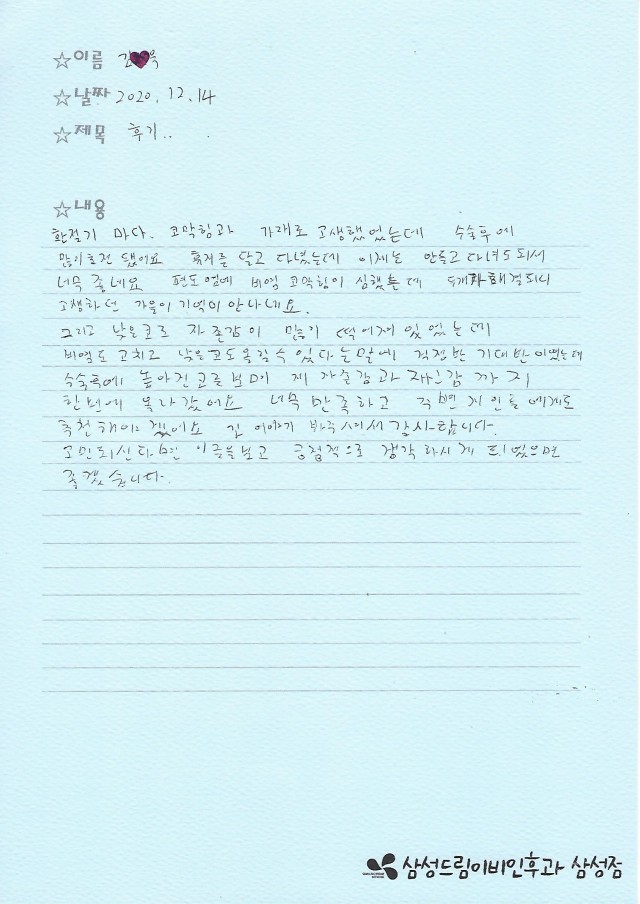 ☆이름 김♥욱
☆날짜 2020. 12. 14
☆제목 후기..
☆내용
환절기 마다. 코막힘과 가래로 고생했었는데 수술후에
많이호전 됐어요 휴지를 달고 다녔는데 이제는 안들고 다녀도 되서
너무 좋네요 편도염에 비염 코막힘이 심했는데 해결되니
고생하던 가을이 기억이 안나네요.
그리고 낮은코로 자존감이 많이 떨어져 있었는데
비염도 고치고 낮은코도올릴수 있다는말에 걱정반 기대반 이였는데
수술후에 높아진 코를 보며 제 자존감과 자신감 까지
한번에 올라갔어요 너무 만족하고 주변 지인들에게도
추천해야 겠어요 긴 이야기 봐주셔서 감사합니다.
고민되신다면 이글을보고 긍정적으로 생각하시게 되었으면
좋겠습니다.
삼성드림이비인후과 삼성점